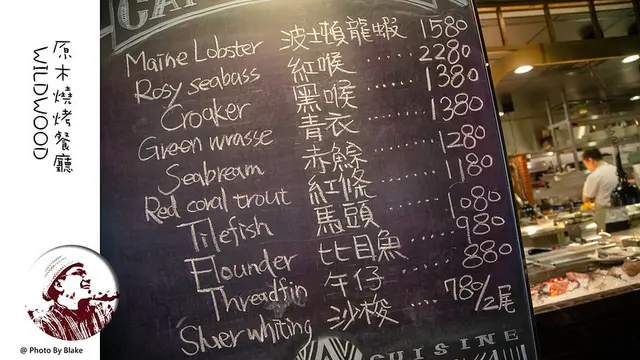 原木燒烤餐廳
WILDWOOD
Maine Lobster 波士頓龍蝦 1580
Rosy seabass 紅喉 ...... 2280
Croaker 黑喉 ...... 1380
Green wrasse 青衣 ...... 1380
Seabream 赤鯮 ...... 1280
Red coral trout 紅條 ...... 1180
Tilefish 馬頭 ...... 1080
Flounder 比目魚 ..... 980
Threadfin 午仔 ...... 880
Silver whiting 沙梭 .... 780/2尾
CUISINE
@ Photo By Blake